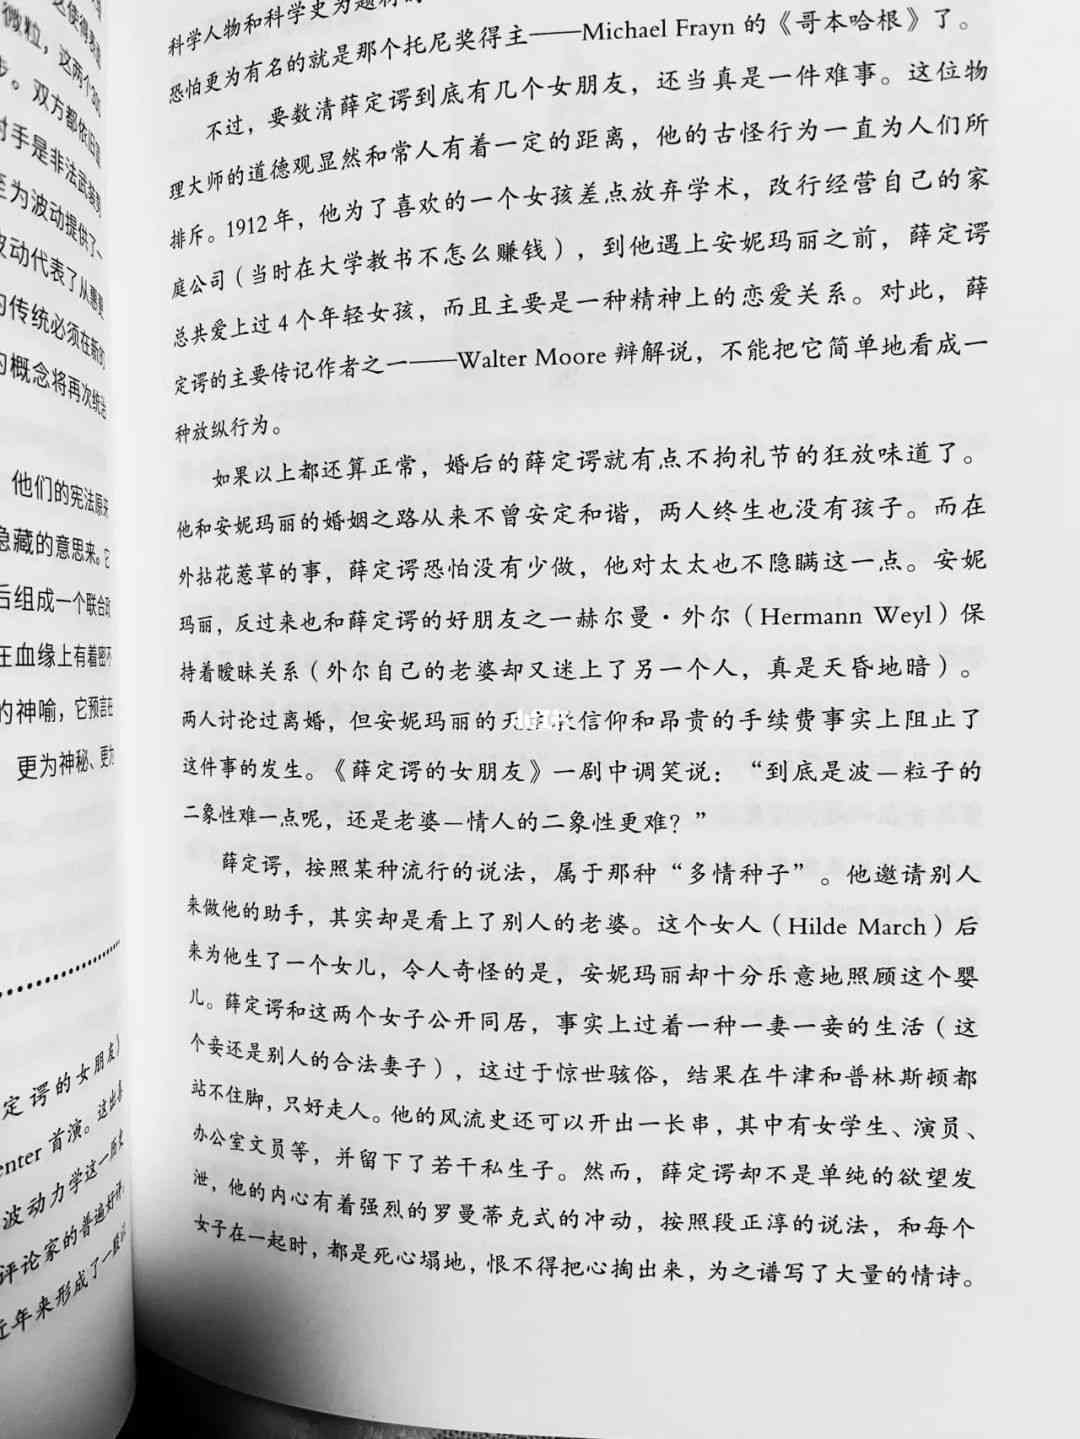 这使得表
微粒，这两个
步。双方都依旧
对手是非法武装
至为波动提供了一
波动代表了从惠更
的传统必须在新的
的概念将再次统治
他们的宪法原来
隐藏的意思来。它
后组成一个联合政
在血缘上有着密不
的神喻，它预言在
更为神秘、更为
定谔的女朋友》
enter 首演。这出
波动力学这一历史
评论家的普遍好评
近年来形成了一股
科学人物和科学史为题材的
恐怕更为有名的就是那个托尼奖得主——Michael Frayn 的《哥本哈根》了。
不过，要数清薛定谔到底有几个女朋友，还当真是一件难事。这位物
理大师的道德观显然和常人有着一定的距离，他的古怪行为一直为人们所
排斥。1912 年，他为了喜欢的一个女孩差点放弃学术，改行经营自己的家
庭公司（当时在大学教书不怎么赚钱），到他遇上安妮玛丽之前，薛定谔
总共爱上过 4 个年轻女孩，而且主要是一种精神上的恋爱关系。对此，薛
定谔的主要传记作者之一——Walter Moore 辩解说，不能把它简单地看成一
种放纵行为。
如果以上都还算正常，婚后的薛定谔就有点不拘礼节的狂放味道了。
他和安妮玛丽的婚姻之路从来不曾安定和谐，两人终生也没有孩子。而在
外拈花惹草的事，薛定谔恐怕没有少做，他对太太也不隐瞒这一点。安妮
玛丽，反过来也和薛定谔的好朋友之一赫尔曼·外尔（Hermann Weyl）保
持着暧昧关系（外尔自己的老婆却又迷上了另一个人，真是天昏地暗）。
两人讨论过离婚，但安妮玛丽的天主教信仰和昂贵的手续费事实上阻止了
这件事的发生。《薛定谔的女朋友》一剧中调笑说：“到底是波—粒子的
二象性难一点呢，还是老婆—情人的二象性更难？”
薛定谔，按照某种流行的说法，属于那种“多情种子”。他邀请别人
来做他的助手，其实却是看上了别人的老婆。这个女人（Hilde March）后
来为他生了一个女儿，令人奇怪的是，安妮玛丽却十分乐意地照顾这个婴
儿。薛定谔和这两个女子公开同居，事实上过着一种一妻一妾的生活（这
个妾还是别人的合法妻子），这过于惊世骇俗，结果在牛津和普林斯顿都
站不住脚，只好走人。他的风流史还可以开出一长串，其中有女学生、演员、
办公室文员等，并留下了若干私生子。然而，薛定谔却不是单纯的欲望发
泄，他的内心有着强烈的罗曼蒂克式的冲动，按照段正淳的说法，和每个
女子在一起时，都是死心塌地，恨不得把心掏出来，为之谱写了大量的情诗。